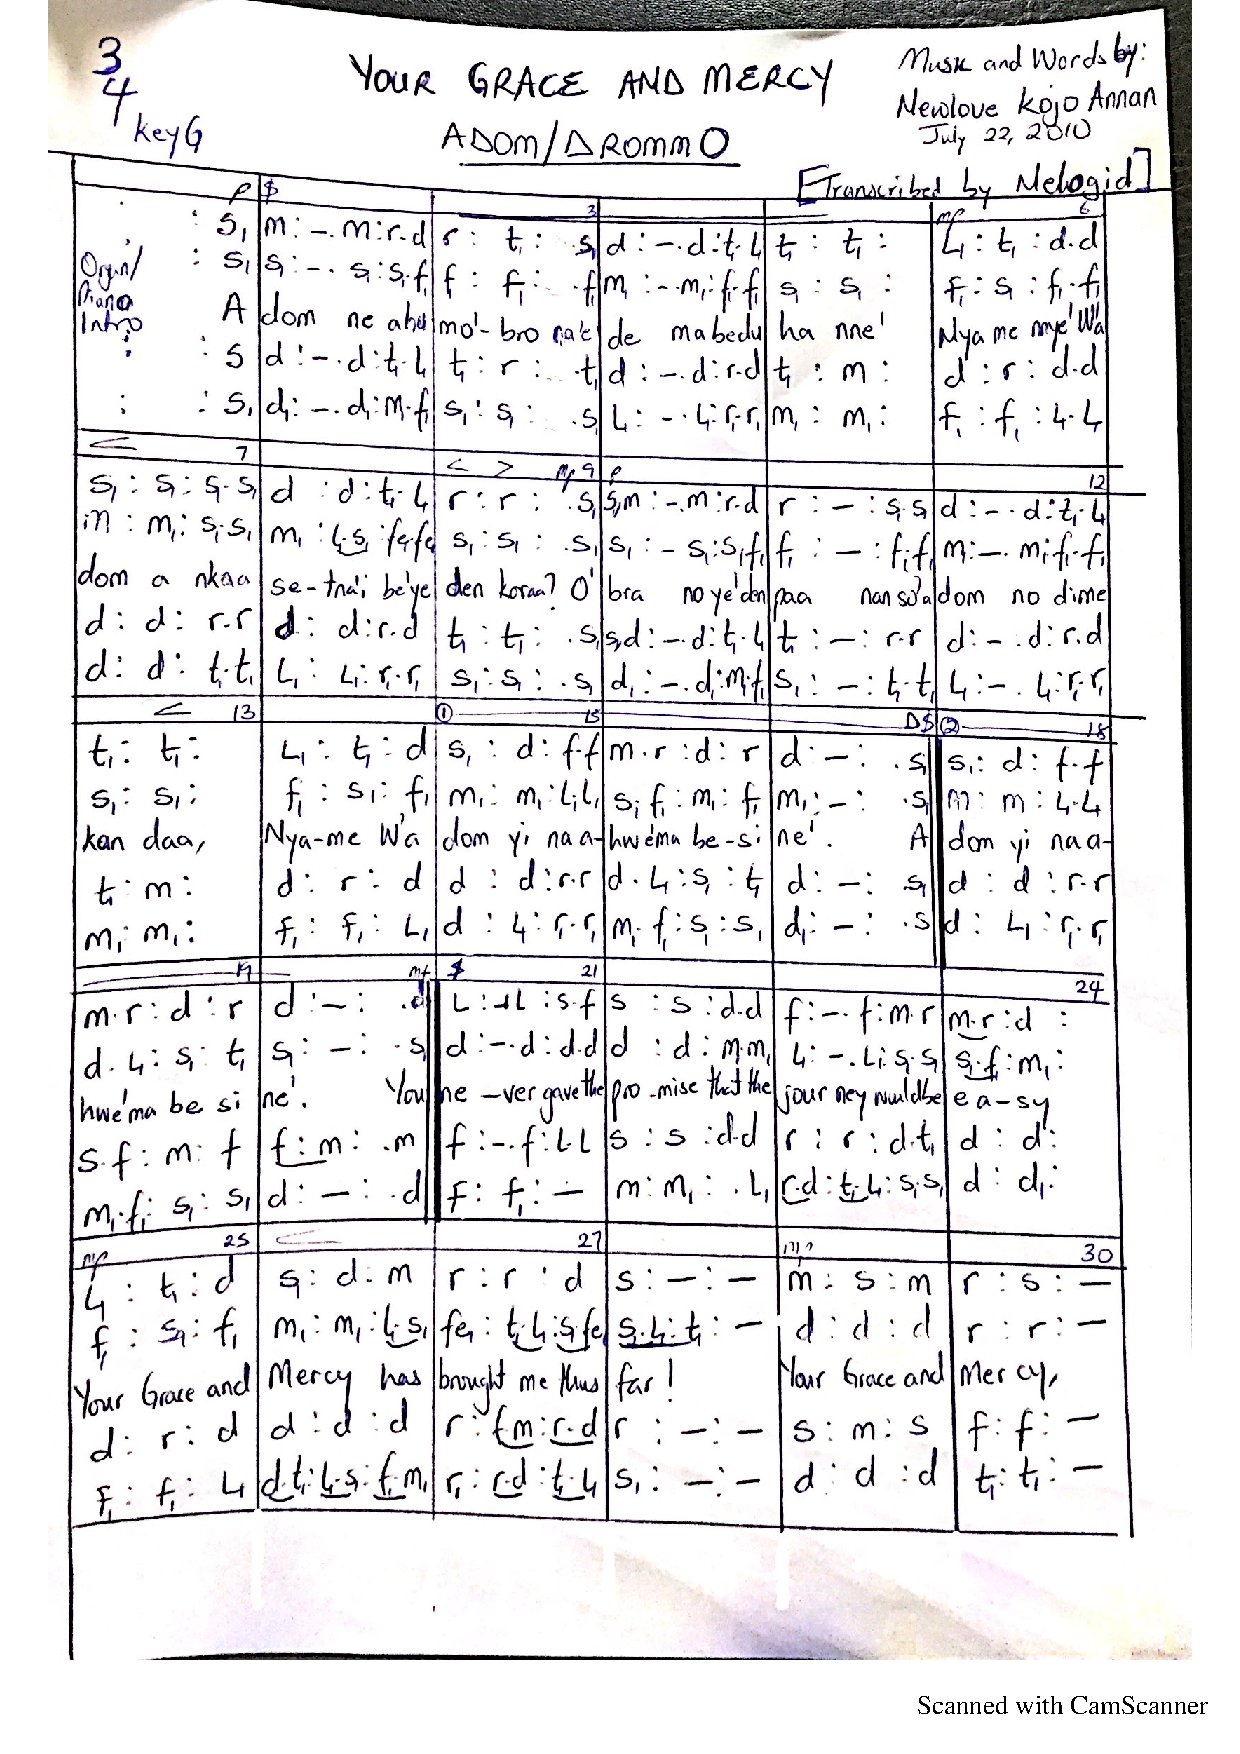 3
4
Key G
YOUR GRACE AND MERCY
ADOM/ΔROMMO
Music and Words by:
Newlove Kojo Annan
July 22, 2010
[Transcribed by Melogid]
p $ 3 mp 6
: S₁ | m : –. m : r.d | r : t₁ : .s₁ | d : –. d : t₁.l₁ | t₁ : t₁ : | l₁ : t₁ : d.d
Organ/ Piano Intro
: S₁ | s₁ : –. s₁ : s₁.f₁ | f₁ : f₁ : .f₁ | m₁ : –. m₁ : f₁.f₁ | s₁ : s₁ : | f₁ : s₁ : f₁.f₁
A | dom ne ahu | mo'-bro na'e | de mabedu | ha nne' | Nya me nnye' W'a
: S | d : –. d : t₁.l₁ | t₁ : r : .t₁ | d : –. d : r.d | t₁ : m : | d : r : d.d
: S₁ | d₁ : –. d₁ : m₁.f₁ | s₁ : s₁ : .s₁ | l₁ : –. l₁ : r₁.r₁ | m₁ : m₁ : | f₁ : f₁ : l₁.l₁
< 7 < > mp 9 p 12
s₁ : s₁ : s₁.s₁ | d : d : t₁.l₁ | r : r : .s₁ | s₁,m : –. m : r.d | r : – : s₁.s₁ | d : –. d : t₁.l₁
m : m₁ : s₁.s₁ | m₁ : l₁.s₁ : fe₁.fe₁ | s₁ : s₁ : .s₁ | s₁ : – s₁ : s₁.f₁ | f₁ : – : f₁.f₁ | m : –. m₁ : f₁.f₁
dom a nkaa | se-tna'i be'ye | den koraa? O' | bra no ye'den | paa nan so'a | dom no dime
d : d : r.r | d : d : r.d | t₁ : t₁ : .s₁ | s₁,d : –. d : t₁.l₁ | t₁ : – : r.r | d : –. d : r.d
d : d : t₁.t₁ | l₁ : l₁ : r₁.r₁ | s₁ : s₁ : .s₁ | d₁ : –. d₁ : m₁.f₁ | s₁ : – : t₁.t₁ | l₁ : –. l₁ : r₁.r₁
< 13 ① 15 D$ ② 18
t₁ : t₁ : | l₁ : t₁ : d | s₁ : d : f.f | m.r : d : r | d : – : .s₁ | s₁ : d : f.f
s₁ : s₁ : | f₁ : s₁ : f₁ | m₁ : m₁ : l₁.l₁ | s₁.f₁ : m₁ : f₁ | m₁ : – : .s₁ | m : m : l₁.l₁
kan daa, | Nya-me W'a | dom yi na a- | hwe'ma be-si | ne'. A | dom yi na a-
t₁ : m : | d : r : d | d : d : r.r | d.l₁ : s₁ : t₁ | d : – : .s₁ | d : d : r.r
m₁ : m₁ : | f₁ : f₁ : l₁ | d : l₁ : r₁.r₁ | m₁.f₁ : s₁ : s₁ | d₁ : – : .s | d : l₁ : r₁.r₁
19 mf $ 21 24
m.r : d : r | d : – : .d | l : –.l : s.f | s : s : d.d | f : –. f : m.r | m.r : d :
d.l₁ : s₁ : t₁ | s₁ : – : .s₁ | d : –. d : d.d | d : d : m₁.m₁ | l₁ : –. l₁ : s₁.s₁ | s₁.f₁ : m₁ :
hwe'ma be si | ne'. You | ne –ver gave the | pro-mise that the | jour ney would be | e a-sy
s.f : m : f | f : m : .m | f : –. f : l.l | s : s : d.d | r : r : d.t₁ | d : d :
m₁.f₁ : s₁ : s₁ | d : – : .d | f : f₁ : – | m : m₁ : .l₁ | r.d : t₁.l₁ : s₁.s₁ | d : d₁ :
mp 25 < 27 mp 30
l₁ : t₁ : d | s₁ : d : m | r : r : d | s : – : – | m : s : m | r : s : –
f₁ : s₁ : f₁ | m₁ : m₁ : l₁.s₁ | fe₁ : t₁.l₁ : s₁.fe₁ | s₁.l₁ : t₁ : – | d : d : d | r : r : –
Your Grace and | Mercy has | brought me thus | far! | Your Grace and | Mercy,
d : r : d | d : d : d | r : f.m : r.d | r : – : – | s : m : s | f : f : –
f₁ : f₁ : l₁ | d.t₁ : l₁.s₁ : f₁.m₁ | r₁ : r.d : t₁.l₁ | s₁ : – : – | d : d : d | t₁ : t₁ : –
Scanned with CamScanner